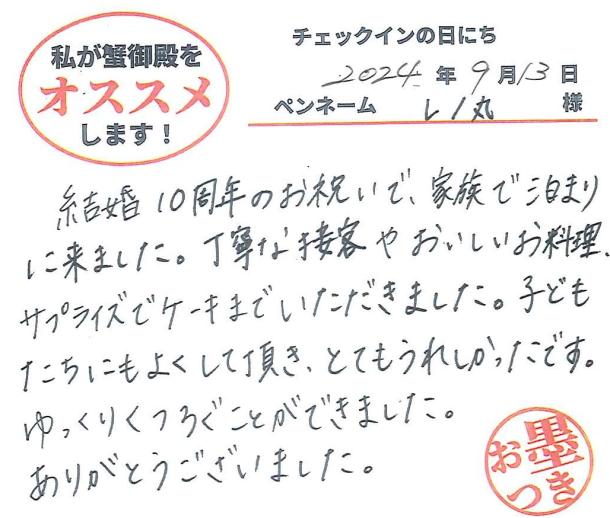 私が蟹御殿を
オススメ
します！
チェックインの日にち
2024年9月13日
ペンネーム レノ丸 様
結婚10周年のお祝いで、家族で泊まり
に来ました。丁寧な接客やおいしいお料理、
サプライズでケーキまでいただきました。子ども
たちにもよくして頂き、とてもうれしかったです。
ゆっくりくつろぐことができました。
ありがとうございました。
お墨つき